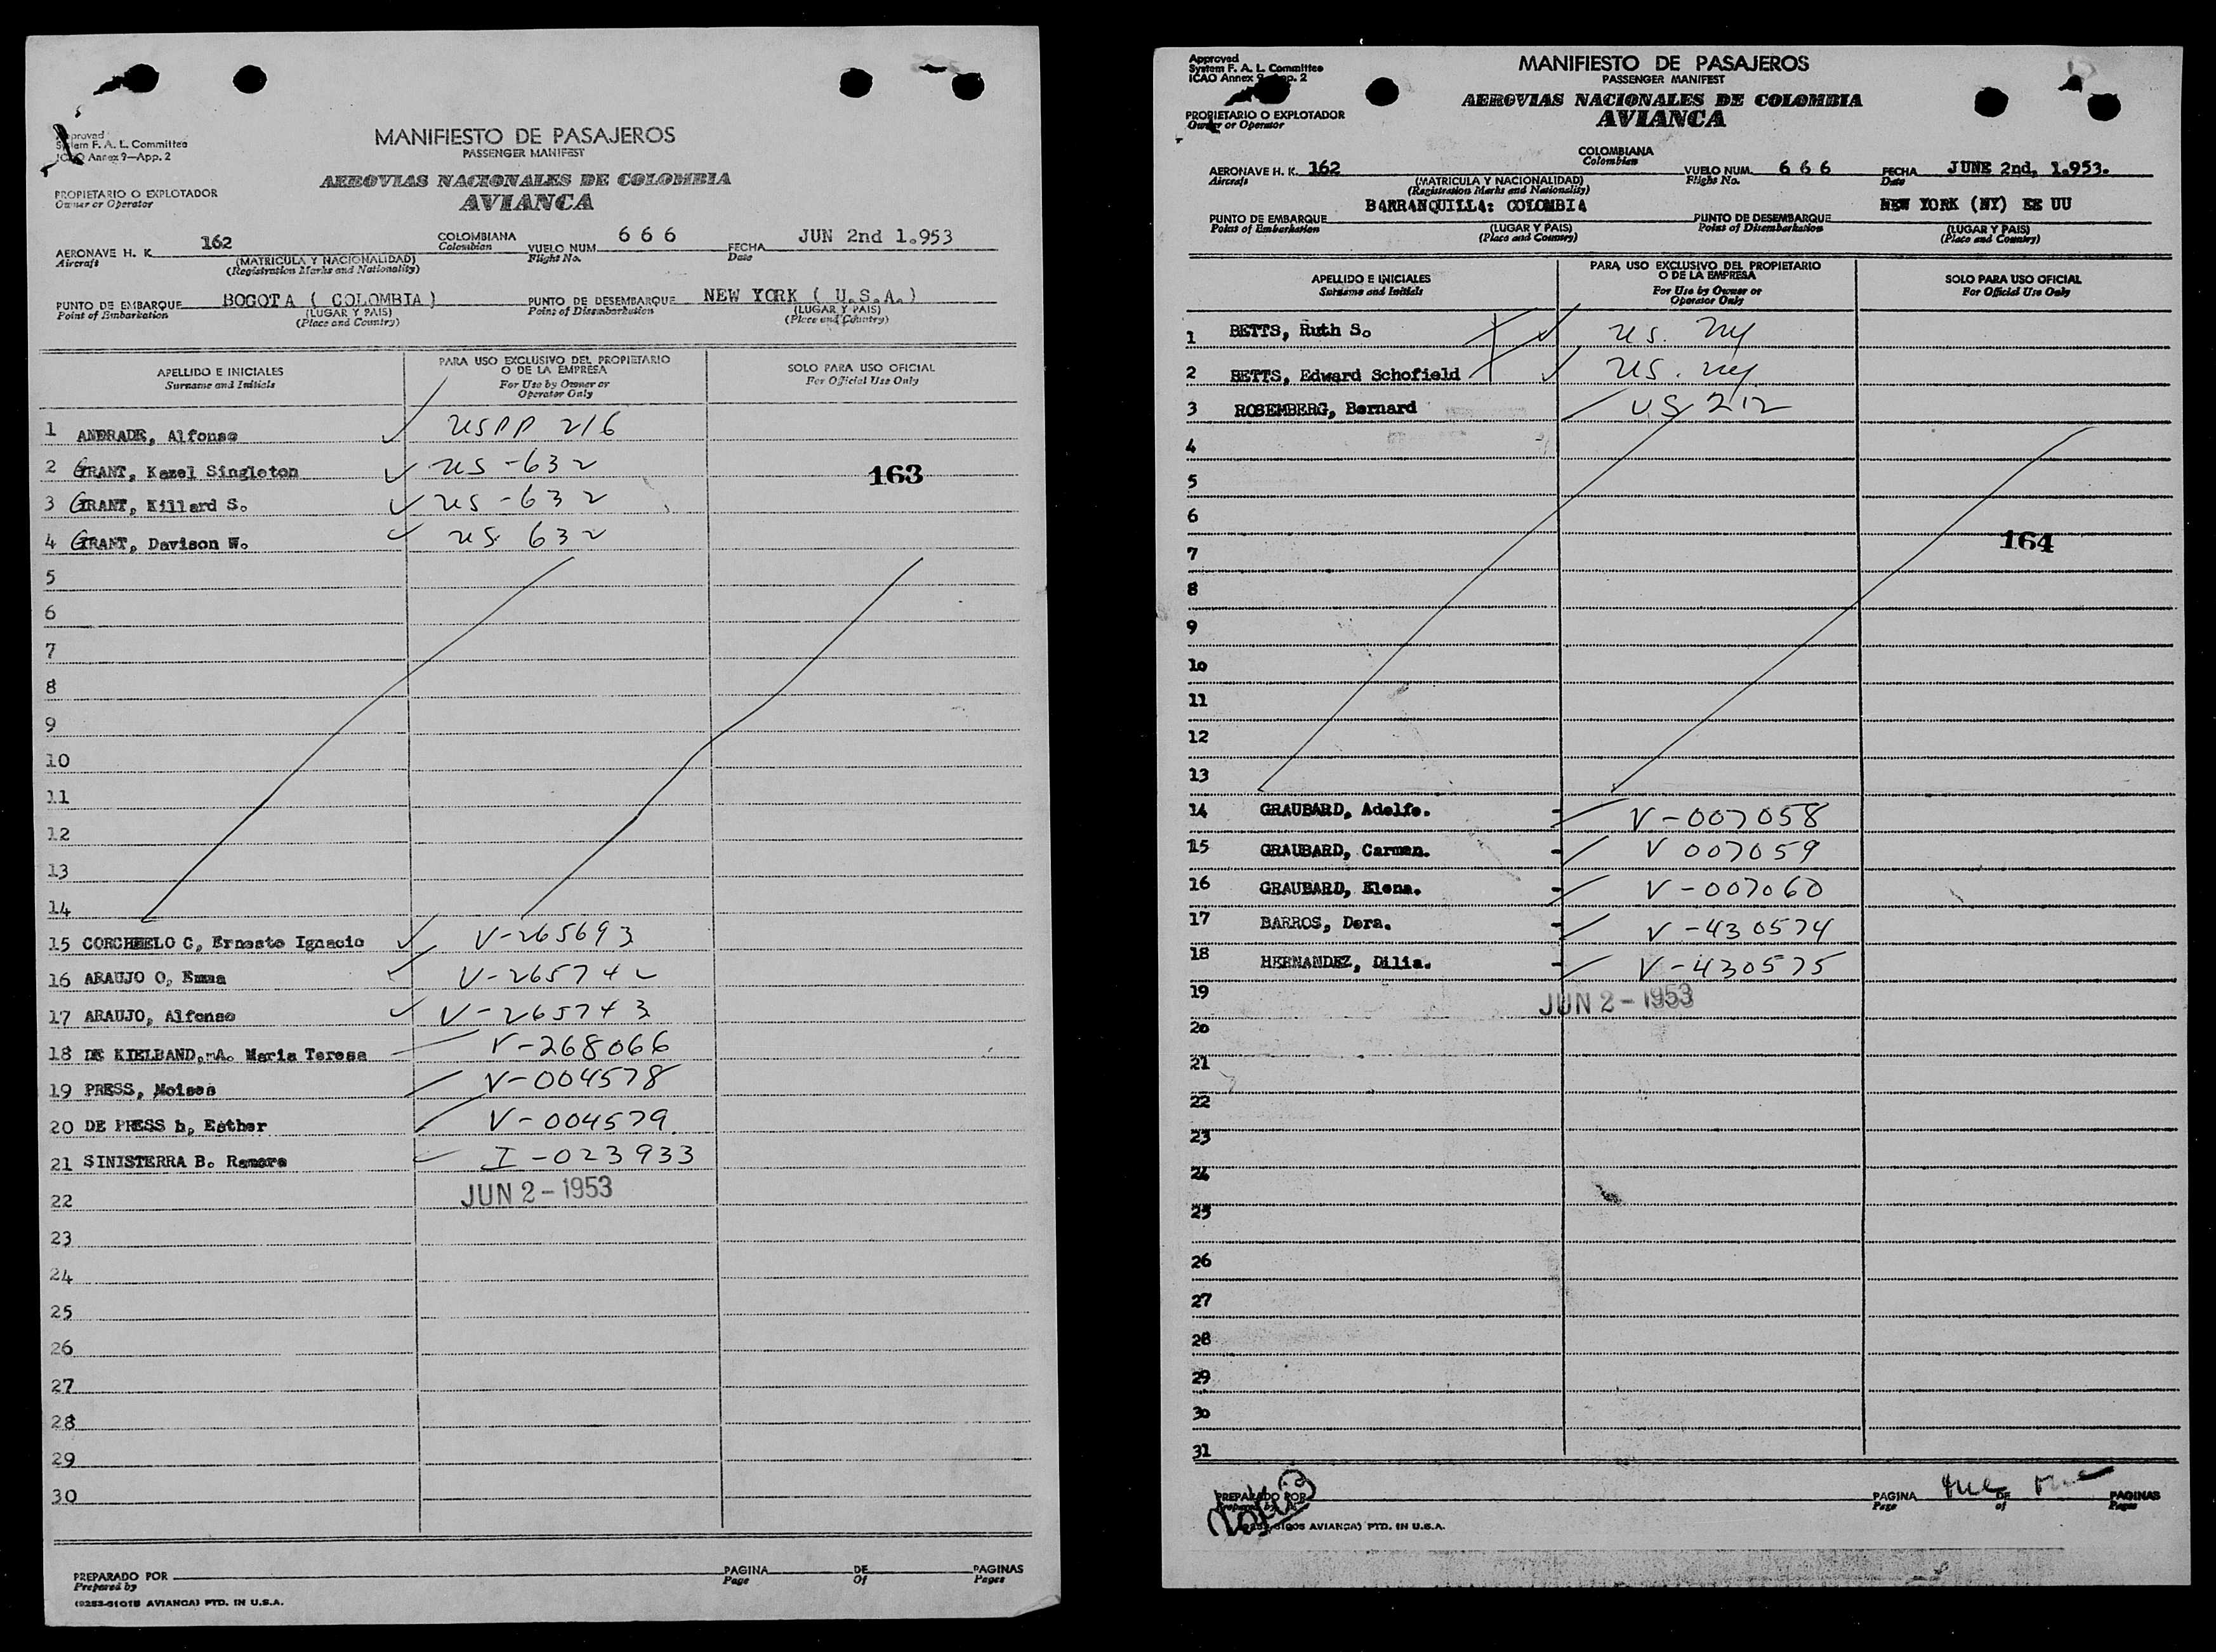 Approved
System F. A. L. Committee
ICAO Annex 9—App. 2
MANIFIESTO DE PASAJEROS
PASSENGER MANIFEST
AEROVIAS NACIONALES DE COLOMBIA
AVIANCA
PROPIETARIO O EXPLOTADOR
Owner or Operator
AERONAVE H. K. 162 COLOMBIANA VUELO NUM. 6 6 6 FECHA JUN 2nd 1.953
Aircraft (MATRICULA Y NACIONALIDAD) Colombian Flight No. Date
(Registration Marks and Nationality)
PUNTO DE EMBARQUE BOGOTA ( COLOMBIA ) PUNTO DE DESEMBARQUE NEW YORK ( U.S.A.)
Point of Embarkation (LUGAR Y PAIS) Point of Disembarkation (LUGAR Y PAIS)
(Place and Country) (Place and Country)
APELLIDO E INICIALES PARA USO EXCLUSIVO DEL PROPIETARIO SOLO PARA USO OFICIAL
Surname and Initials O DE LA EMPRESA For Official Use Only
For Use by Owner or
Operator Only
1 ANDRADE, Alfonso USPP 216
2 GRANT, Kazel Singleton US-632 163
3 GRANT, Killard S. US-632
4 GRANT, Davison W. US 632
5
6
7
8
9
10
11
12
13
14
15 CORCHUELO C, Ernesto Ignacio V-265693
16 ARAUJO O, Emma V-265742
17 ARAUJO, Alfonso V-265743
18 DE KIELBAND,-A. Maria Teresa V-268066
19 PRESS, Moises V-004578
20 DE PRESS h, Esther V-004579
21 SINISTERRA B. Ramora I-023933
22 JUN 2-1953
23
24
25
26
27
28
29
30
PREPARADO POR PAGINA DE PAGINAS
Prepared by Page Of Pages
(9253-6101B AVIANCA) PTD. IN U.S.A.
Approved
System F. A. L. Committee
ICAO Annex 9—App. 2
MANIFIESTO DE PASAJEROS
PASSENGER MANIFEST
AEROVIAS NACIONALES DE COLOMBIA
AVIANCA
PROPIETARIO O EXPLOTADOR
Owner or Operator
AERONAVE H. K. 162 COLOMBIANA VUELO NUM. 6 6 6 FECHA JUNE 2nd, 1.953.
Aircraft (MATRICULA Y NACIONALIDAD) Colombian Flight No. Date
(Registration Marks and Nationality)
PUNTO DE EMBARQUE BARRANQUILLA: COLOMBIA PUNTO DE DESEMBARQUE NEW YORK (NY) EE UU
Point of Embarkation (LUGAR Y PAIS) Point of Disembarkation (LUGAR Y PAIS)
(Place and Country) (Place and Country)
APELLIDO E INICIALES PARA USO EXCLUSIVO DEL PROPIETARIO SOLO PARA USO OFICIAL
Surname and Initials O DE LA EMPRESA For Official Use Only
For Use by Owner or
Operator Only
1 BETTS, Ruth S. US. ny
2 BETTS, Edward Schofield US. ny
3 ROSEMBERG, Bernard US 212
4
5
6
7 164
8
9
10
11
12
13
14 GRAUBARD, Adolfo. V-007058
15 GRAUBARD, Carmen. V 007059
16 GRAUBARD, Elena. V-007060
17 BARROS, Dora. V-430574
18 HERNANDEZ, Dilia. V-430575
19 JUN 2-1953
20
21
22
23
24
25
26
27
28
29
30
31
PREPARADO POR PAGINA DE PAGINAS
Prepared by Page of Pages
AVIANCA) PTD. IN U.S.A.